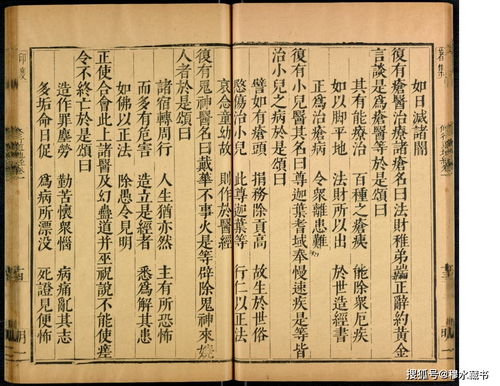 如日滅諸闇
復有瘡醫治療諸瘡名曰法財稚弟端正辭約黃金
言談是為瘡醫等於是頌曰
其有能療治 百種之瘡痍 能除眾厄疾
如以脚平地 法財所以出 於世造經書
正為治瘡病 令眾離患難
復有小兒醫其名曰尊迦葉耆域奉慢速疾是等皆
治小兒之病於是頌曰
譬如有瘡頭 捐務除貢高 故生於世俗
愍傷治小兒 此尊迦葉等 行仁以正法
哀念童幼故 則作於醫經
復有鬼神醫名曰戴華不事火是等辟除鬼神來嬈
人者於是頌曰
諸宿轉周行 人生猶亦然 主有所恐怖
而多有危害 造立是經者 悉為解其患
如佛以正法 除愚令見明
正使合會此上諸醫及幻蠱道并巫祝說不能使差
令不終亡於是頌曰
造作罪塵勞 勤苦懷眾惱 病痛亂其志
多垢命日促 為病所漂没 死證見便怖
搜狐号@穆水藏书